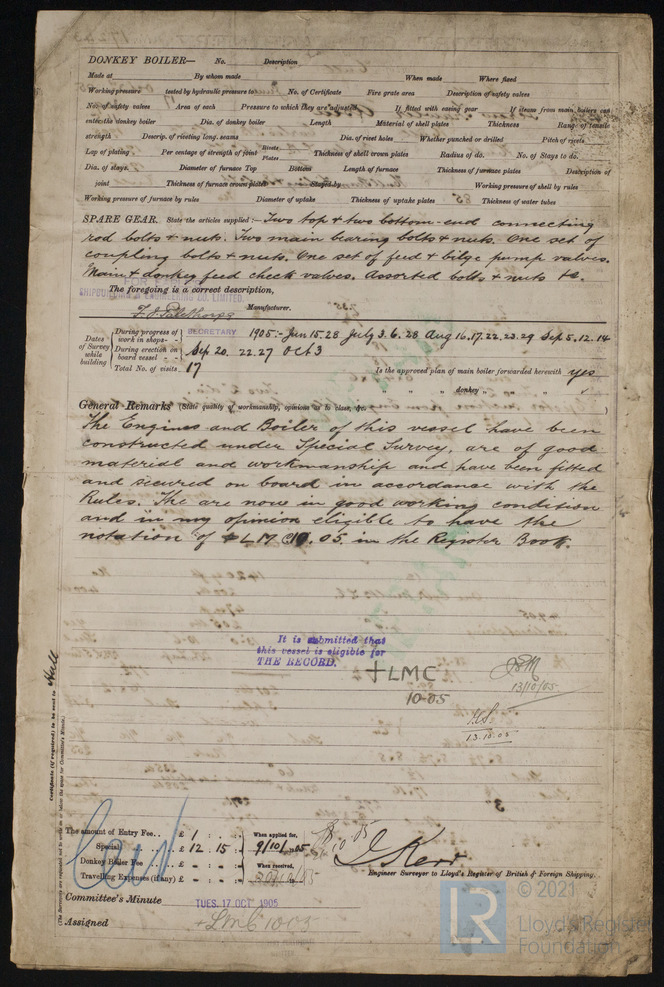 DONKEY BOILER— No. Description
Made at By whom made When made Where fixed
Working pressure tested by hydraulic pressure to No. of Certificate Fire grate area Description of safety valves
No. of safety valves Area of each Pressure to which they are adjusted If fitted with easing gear If steam from main boilers can
enter the donkey boiler Dia. of donkey boiler Length Material of shell plates Thickness Range of tensile
strength Descrip. of riveting long. seams Dia. of rivet holes Whether punched or drilled Pitch of rivets
Lap of plating Per centage of strength of joint Rivets Plates Thickness of shell crown plates Radius of do. No. of Stays to do.
Dia. of stays Diameter of furnace Top Bottom Length of furnace Thickness of furnace plates Description of
joint Thickness of furnace crown plates Stayed by Working pressure of shell by rules
Working pressure of furnace by rules Diameter of uptake Thickness of uptake plates Thickness of water tubes
SPARE GEAR. State the articles supplied:— Two top & two bottom-end connecting
rod bolts & nuts. Two main bearing bolts & nuts. One set of
coupling bolts & nuts. One set of feed & bilge pump valves.
Main & donkey feed check valves. Assorted bolts & nuts &c.
The foregoing is a correct description,
SHIPBUILDING & ENGINEERING CO. LIMITED.
Manufacturer.
SECRETARY
Dates of Survey while building
During progress of work in shops - - 1905:- Jun 15. 28 July 3. 6. 28 Aug 16. 17. 22. 23. 29 Sep 5. 12. 14
During erection on board vessel - - Sep 20. 22. 27 Oct 3
Total No. of visits 17 Is the approved plan of main boiler forwarded herewith yes
" " " donkey " " "
General Remarks (State quality of workmanship, opinions as to class, &c.
The Engines and Boiler of this vessel have been
constructed under Special Survey, are of good
material and workmanship and have been fitted
and secured on board in accordance with the
Rules. The are now in good working condition
and in my opinion eligible to have the
notation of + LMC 10.05. in the Register Book.
It is submitted that
this vessel is eligible for
THE RECORD.
+ LMC
10-05
13/10/05
13.10.05
Certificate (if required) to be sent to Hull
(The Surveyors are requested not to write on or below the space for Committee's Minute.)
The amount of Entry Fee.. £ 1 : : When applied for,
Special .. £ 12 . 15 : 9/10/05
Donkey Boiler Fee .. £ : : When received,
Travelling Expenses (if any) £ : :
J Kerr
Engineer Surveyor to Lloyd's Register of British & Foreign Shipping.
Committee's Minute TUES. 17 OCT 1905
Assigned + LMC 10 05
LR © 2021
Lloyd's Register
Foundation